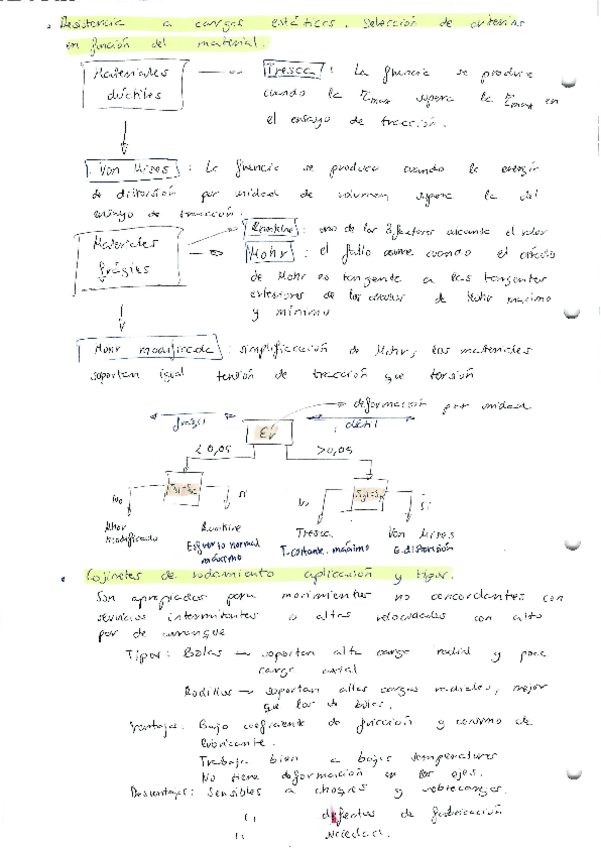 Resistencia a cargas estáticas. Selección de criterios
en función del material.
Materiales dúctiles → Tresca: La fluencia se produce
cuando la τmax supera la τmax en
el ensayo de tracción.
Von Mises: La fluencia se produce cuando la energía
de distorsión por unidad de volumen supera la del
ensayo de tracción.
Materiales frágiles → Rankine: uno de los 3 alcance el valor
Mohr: el fallo ocurre cuando el círculo
de Mohr es tangente a las tangentes
exteriores de los círculos de Mohr máximo
y mínimo
Mohr modificada: simplificación de Mohr, los materiales
soportan igual tensión de tracción que torsión
deformación por unidad
frágil dúctil
εf
< 0,05 >0,05
No Si No Si
Mohr modificado Rankine Tresca Von Mises
Esfuerzo normal máximo T. cortante máximo E. distorsión
Cojinetes de rodamiento aplicación y tipos.
Son apropiados para movimientos no concordantes con
servicios intermitentes o altas velocidades con alto
par de arranque
Tipos: Bolas → soportan alta carga radial y poca
carga axial
Rodillos → soportan altas cargas radiales, mejor
que los de bolas.
Ventajas: Bajo coeficiente de fricción y consumo de
lubricante.
Trabaja bien a bajas temperaturas
No tiene deformación en los ejes.
Desventajas: Sensibles a choques y sobrecargas.
" defectos de fabricación
" suciedad.